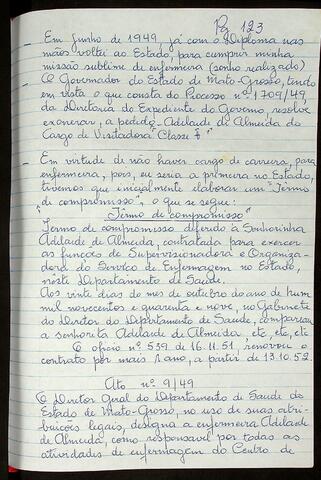 Pg 123
Em junho de 1949, já com o Diploma nas
mãos voltei ao Estado, para cumprir minha
missão sublime de enfermeira (sonho realizado)
O Governador do Estado de Mato-Grosso, tendo
em vista o que consta do Processo nº 1709/49,
da Diretoria do Expediente do Governo, resolve
exonerar, a pedido, Adelaide de Almeida do
Cargo de Visitadora "Classe F"
Em virtude de não haver cargo de carreira, para
enfermeira, pois, eu seria a primeira no Estado,
tivemos que inicialmente elaborar um "Termo
de compromisso", o que se segue:
"Termo de compromisso"
Termo de compromisso diferido à Senhorinha
Adelaide de Almeida, contratada para exercer
as funções de Supervisionadora e Organiza-
dora do Serviço de Enfermagem no Estado,
nêste Departamento de Saúde.
Aos vinte dias do mês de outubro do ano de hum
mil novecentos e quarenta e nove, no Gabinete
do Diretor do Departamento de Saúde, compareceu
a senhorita Adelaide de Almeida, etc, etc, etc
O ofício nº 539 de 16.11.51, renovou o
contrato por mais 1 ano, a partir de 13.10.52.
Ato nº 9/49
O Diretor Geral do Departamento de Saúde do
Estado de Mato-Grosso, no uso de suas atri-
buições legais, designa a enfermeira Adelaide
de Almeida, como responsável por todas as
atividades de enfermagem do Centro de